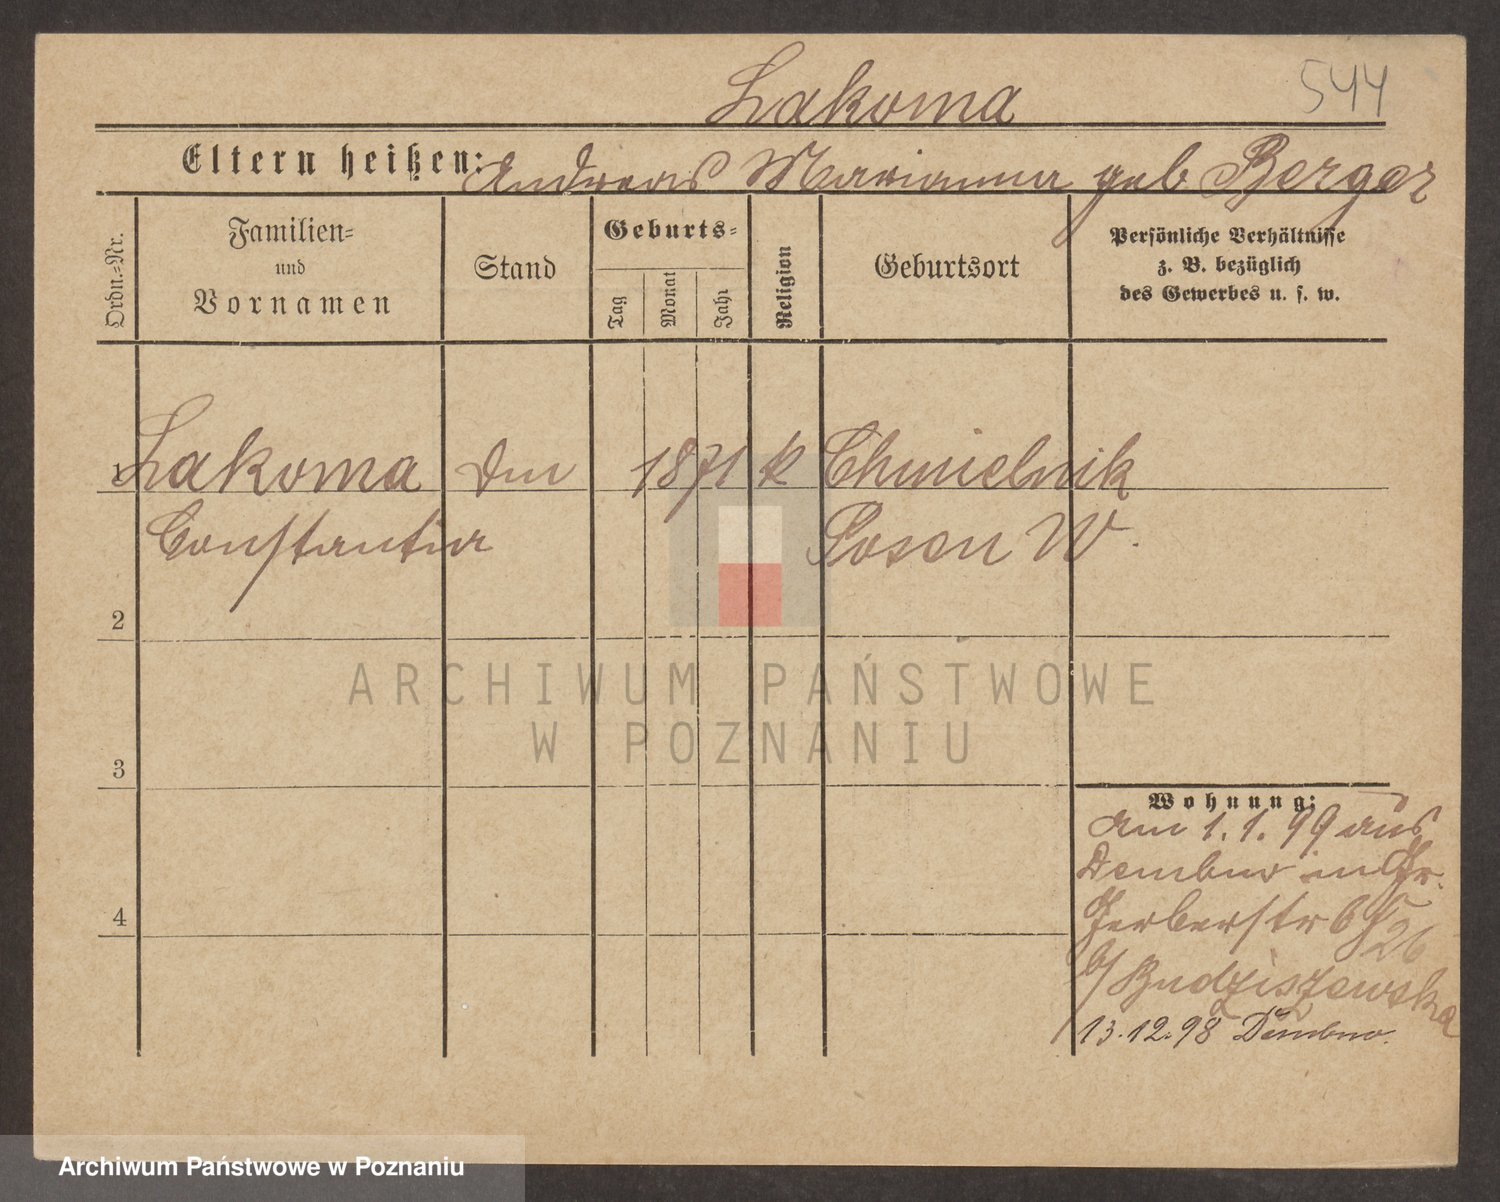 Lakoma
544
Eltern heißen: Andreas Marianna geb Berger
Ordn.-Nr.
Familien-
und
Vornamen
Stand
Geburts-
Tag
Monat
Jahr
Religion
Geburtsort
Persönliche Verhältnisse
z. B. bezüglich
des Gewerbes u. s. w.
1 Lakoma 1871 k Chmielnik
Constantia Posen W.
2
3
4
Wohnung:
Am 1.1.99 aus
Dembno in Gr.
Gerberstr 6
26
b/ Budziszewska
13.12.98 Dembno.
ARCHIWUM PAŃSTWOWE
W POZNANIU
Archiwum Państwowe w Poznaniu